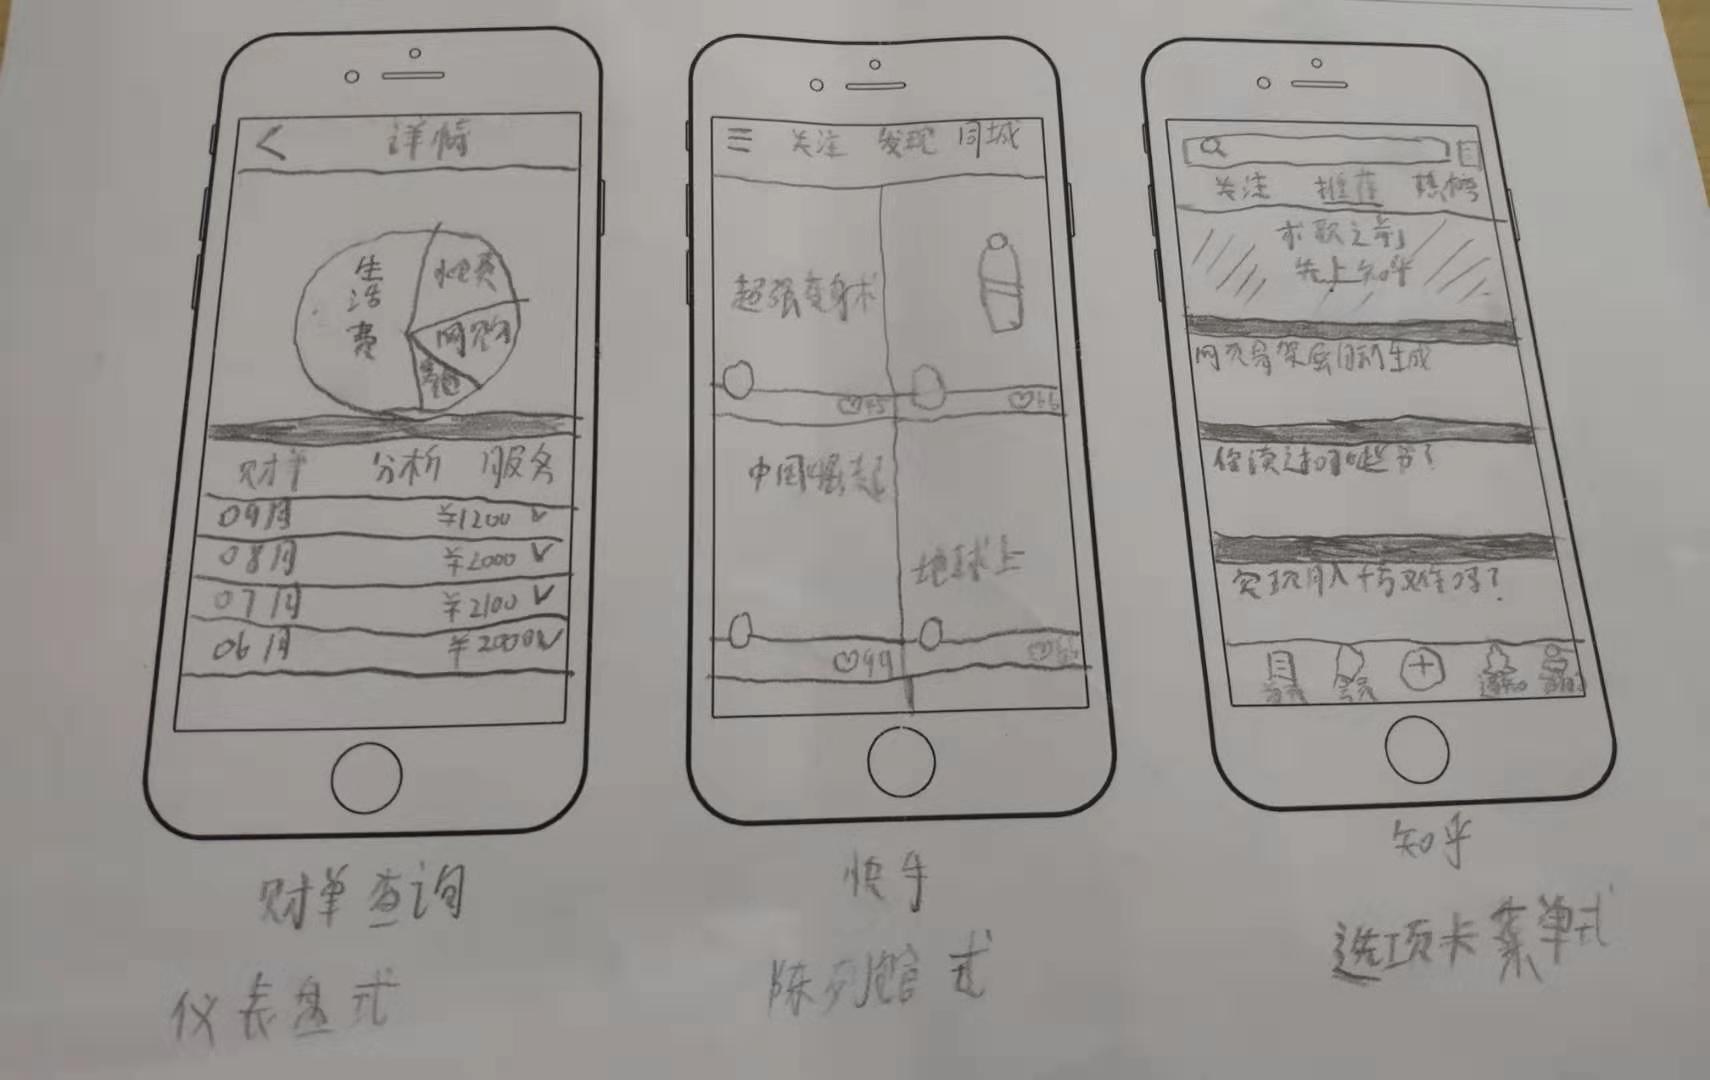 详情
生活费
电费
网购
财单 分析 服务
09月 ¥1200
08月 ¥2000
07月 ¥2100
06月 ¥2000
财单查询
仪表盘式
关注 发现 同城
超强变身术
♡45 ♡66
中国崛起
地球上
♡99
快手
陈列馆式
关注 推荐 热榜
求职之前
先上知乎
网页骨架屏自动生成
你读过哪些书?
实现月入十万难吗?
首页 会员 + 通知
知乎
选项卡菜单式